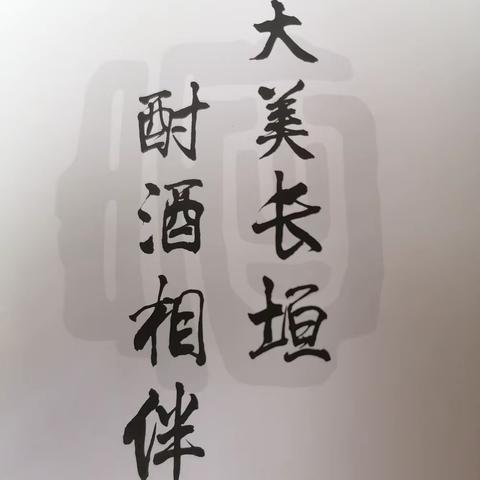 大美长垣
酎酒相伴